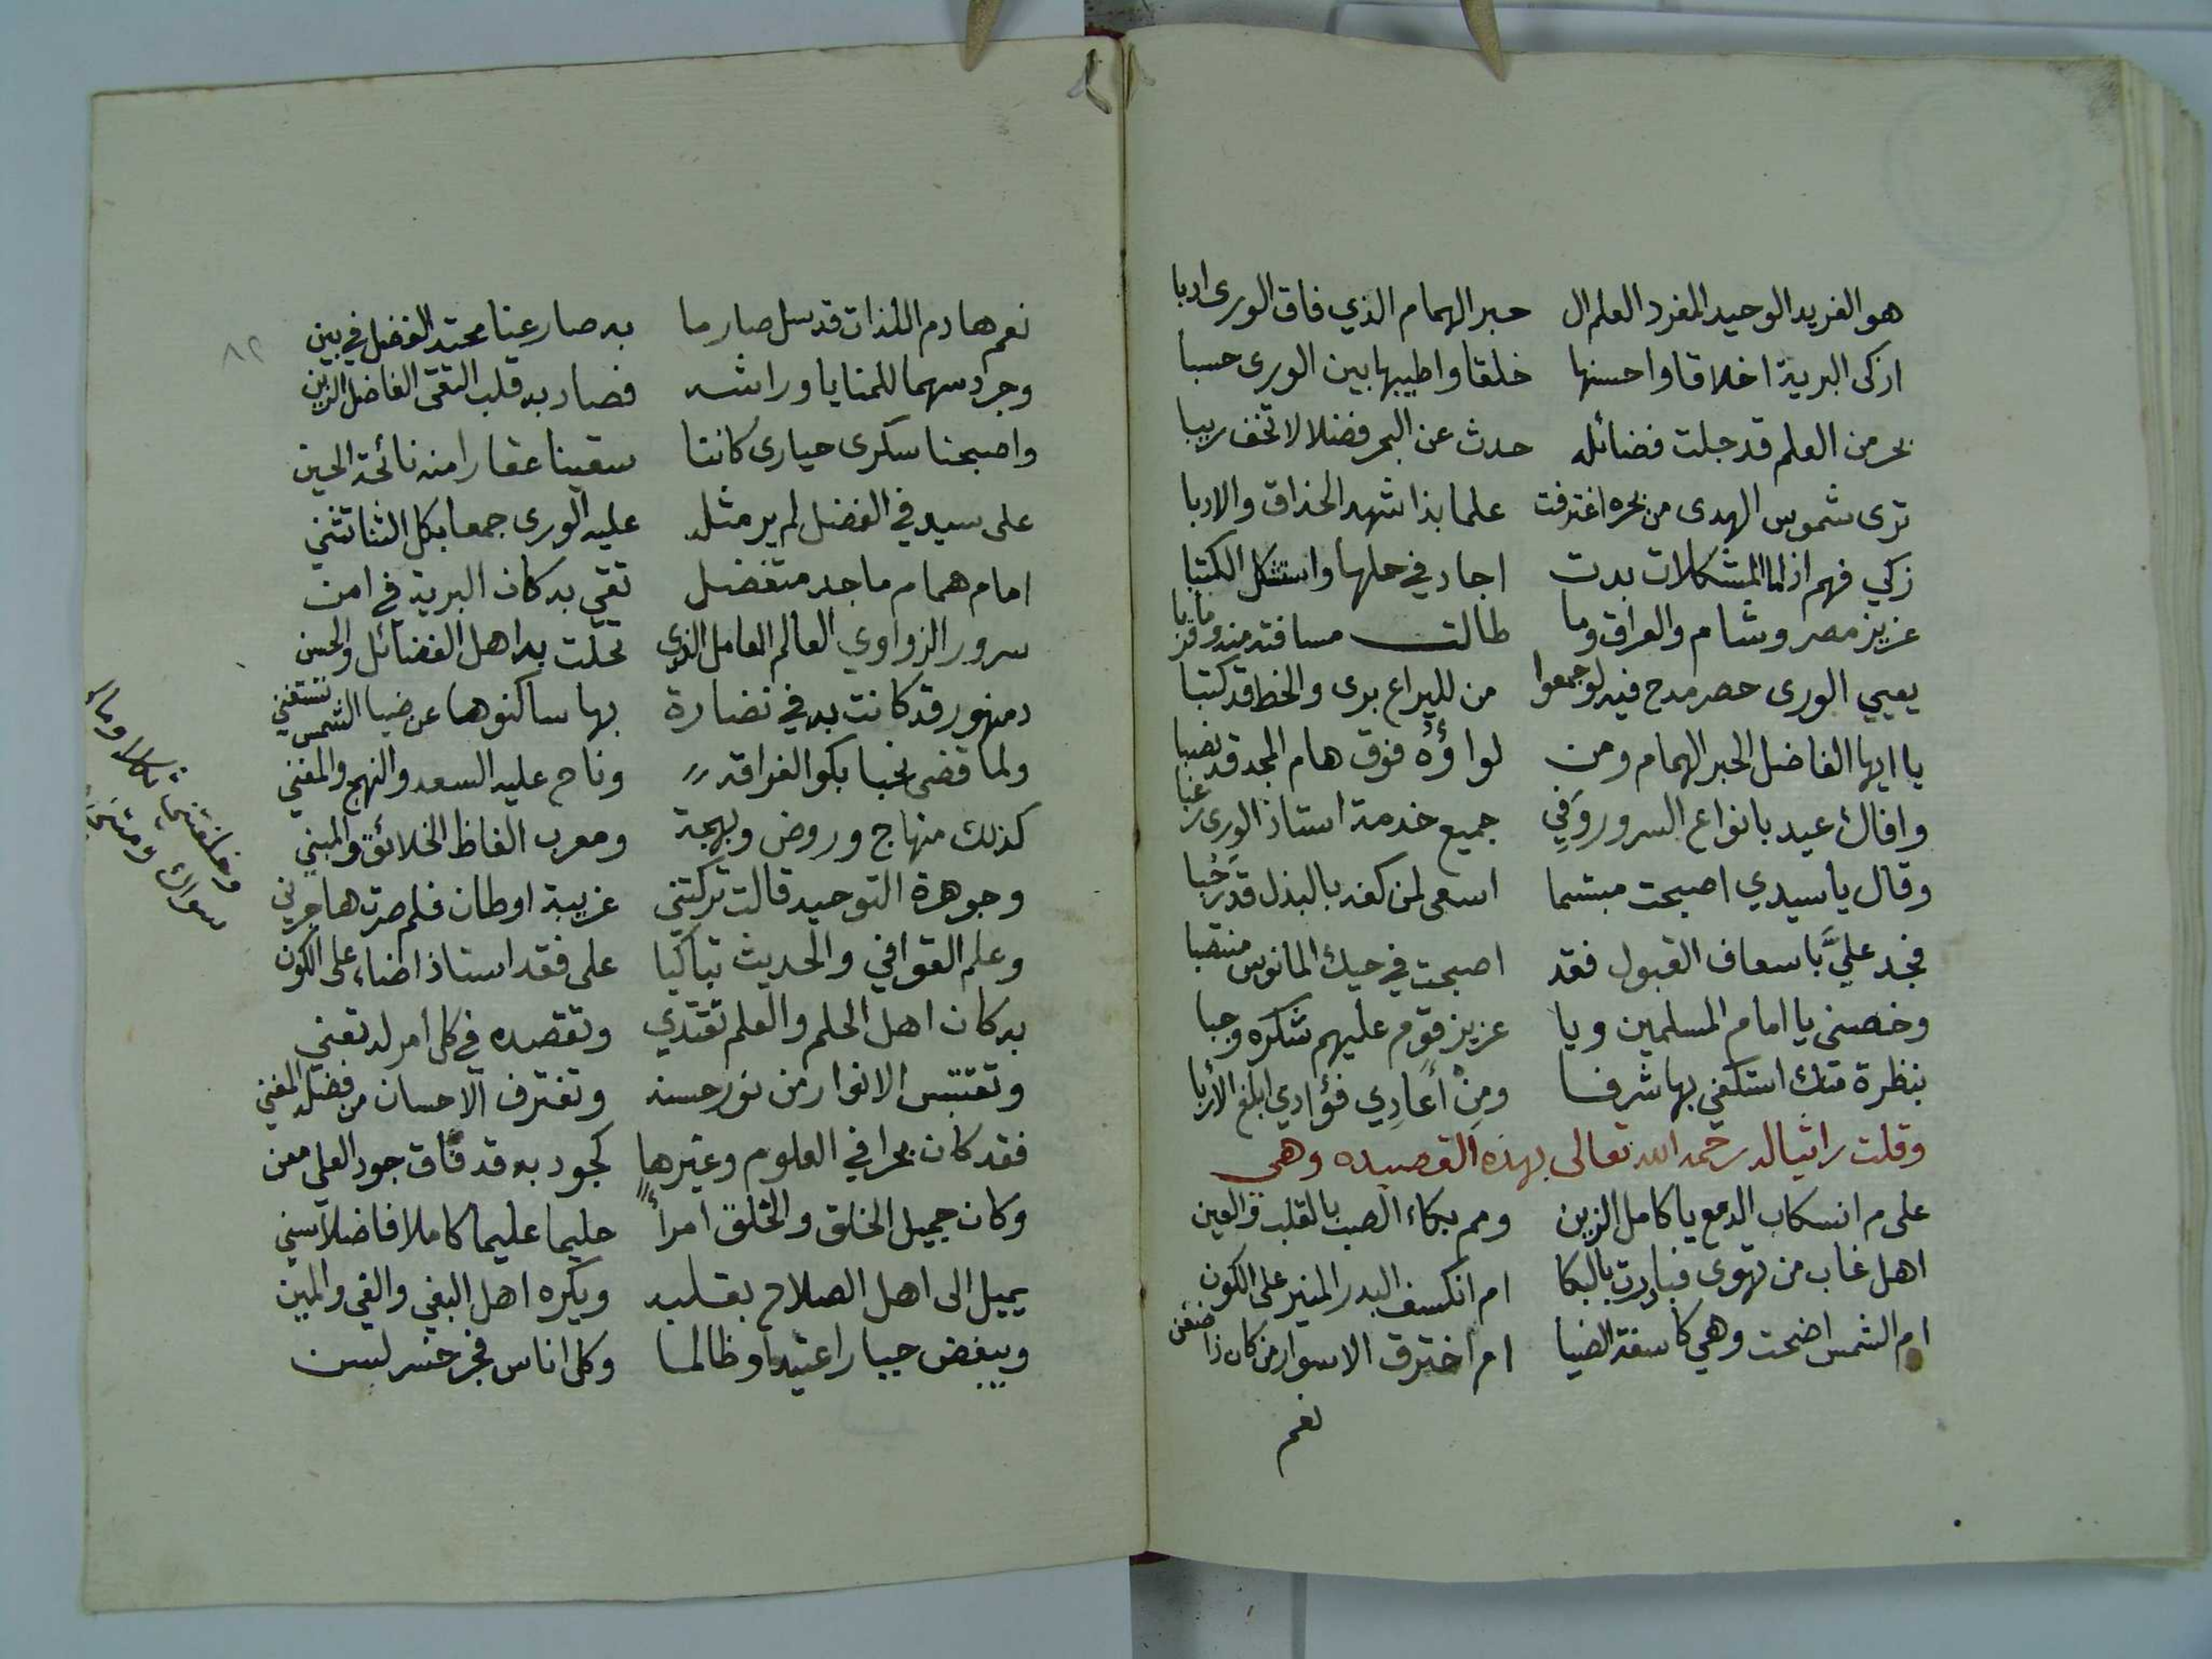 هو الفريد الوحيد المفرد العلم ال حبر الهمام الذي فاق الورى ادبا
ازكى البرية اخلاقا واحسنها خلقا واطيبها بين الورى حسبا
بحر من العلم قد جلت فضائله حدث عن البحر فضلا لا تخف ريبا
ترى شموس الهدى من بحره اغترفت علما بذا شهد الحذاق والادبا
زكي فهم اذا ما المشكلات بدت اجاد في حلها واستشكل الكتبا
عزيز مصر وشام والعراق وما طالت مسافته منه وما قربا
يعيي الورى حصر مدح فيه لو جمعوا من لليراع برى والخط قد كتبا
يا ايها الفاضل الحبر الهمام ومن لواؤه فوق هام المجد قد نصبا
وافاك عيد بانواع السرور وفي جميع خدمة استاذ الورى رغبا
وقال يا سيدي اصبحت مبتسما اسعى لمن كفه بالبذل قد رحبا
فجد عليَّ باسعاف القبول فقد اصبحت في حيك المانوس منتصبا
وخصني يا امام المسلمين ويا عزيز قوم عليهم شكره وجبا
بنظرة منك استكفي بها شرفا ومن أعادي فؤادي ابلغ الأربا
وقلت راثيا له رحمه الله تعالى بهذه القصيده وهي
على م انسكاب الدمع يا كامل الزين ومم بكاء الصب بالقلب والعين
اهل غاب من تهوى فبادرت بالبكا ام انكسف البدر المنير على الكون
ام الشمس اضحت وهي كاسفة الضيا ام اخترق الاسوار من كان ذا ضغن
نعم
٨٢
نعم هادم اللذات قد سل صارما به صار عينا محتد الفضل في بين
وجرد سهما للمنايا وراشه فصاد به قلب التقى الفاضل الزين
واصبحنا سكرى حيارى كاننا سقينا عقارا منه نائحة الحين
على سيد في الفضل لم ير مثله عليه الورى جمعا بكل الثنا تثني
امام همام ماجد متفضل تقي به كان البرية في امن
سرور الزواوي العالم العامل الذي تحلت به اهل الفضائل والحسن
دمنهور قد كانت به في نضارة بها ساكنوها عن ضيا الشمس تستغني
ولما قضى نحبا بكوا لفراقه وناح عليه السعد والنهج والمغني
كذلك منهاج وروض وبهجة ومعرب الفاظ الخلائق والمبني
وجوهرة التوحيد قالت تركتني غريبة اوطان فلم صرت هاجرني
وعلم القوافي والحديث تباكيا على فقد استاذ اضاء على الكون
به كان اهل الحلم والعلم تقتدي وتقصده في كل امر له تعني
وتقتبس الانوار من نور حسنه وتغترف الاحسان من فضله المغني
فقد كان بحرا في العلوم وغيرها كجود به قد فاق جود العلي معن
وكان جميل الخلق والخلق امرأ حليما عليما كاملا فاضلا سني
يميل الى اهل الصلاح بقلبه ويكره اهل البغي والغي والمين
ويبغض جبارا عتيدا وظالما وكل اناس فجر خسر لسن